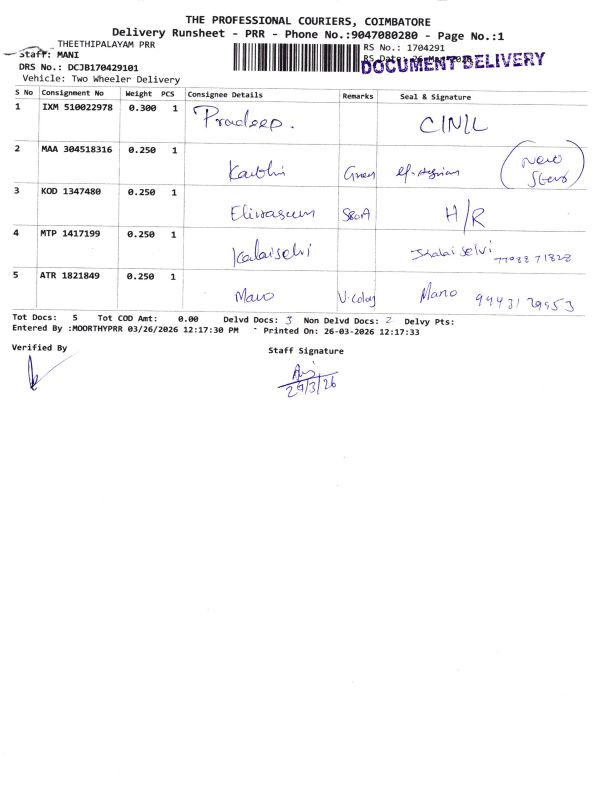 THE PROFESSIONAL COURIERS, COIMBATORE
Delivery Runsheet - PRR - Phone No.:9047080280 - Page No.:1
THEETHIPALAYAM PRR
Staff: MANI
DRS No.: DCJB170429101
Vehicle: Two Wheeler Delivery
RS No.: 1704291
RS Date:
DOCUMENT DELIVERY
S No Consignment No Weight PCS Consignee Details Remarks Seal & Signature
1 IXM 510022978 0.300 1 Pradeep.
2 MAA 304518316 0.250 1
3 KOD 1347480 0.250 1 H/R
4 MTP 1417199 0.250 1 Kalaiselvi Kalai selvi
5 ATR 1821849 0.250 1 Mano Mano
Tot Docs: 5 Tot COD Amt: 0.00 Delvd Docs: 3 Non Delvd Docs: 2 Delvy Pts:
Entered By :MOORTHYPRR 03/26/2026 12:17:30 PM Printed On: 26-03-2026 12:17:33
Verified By
Staff Signature